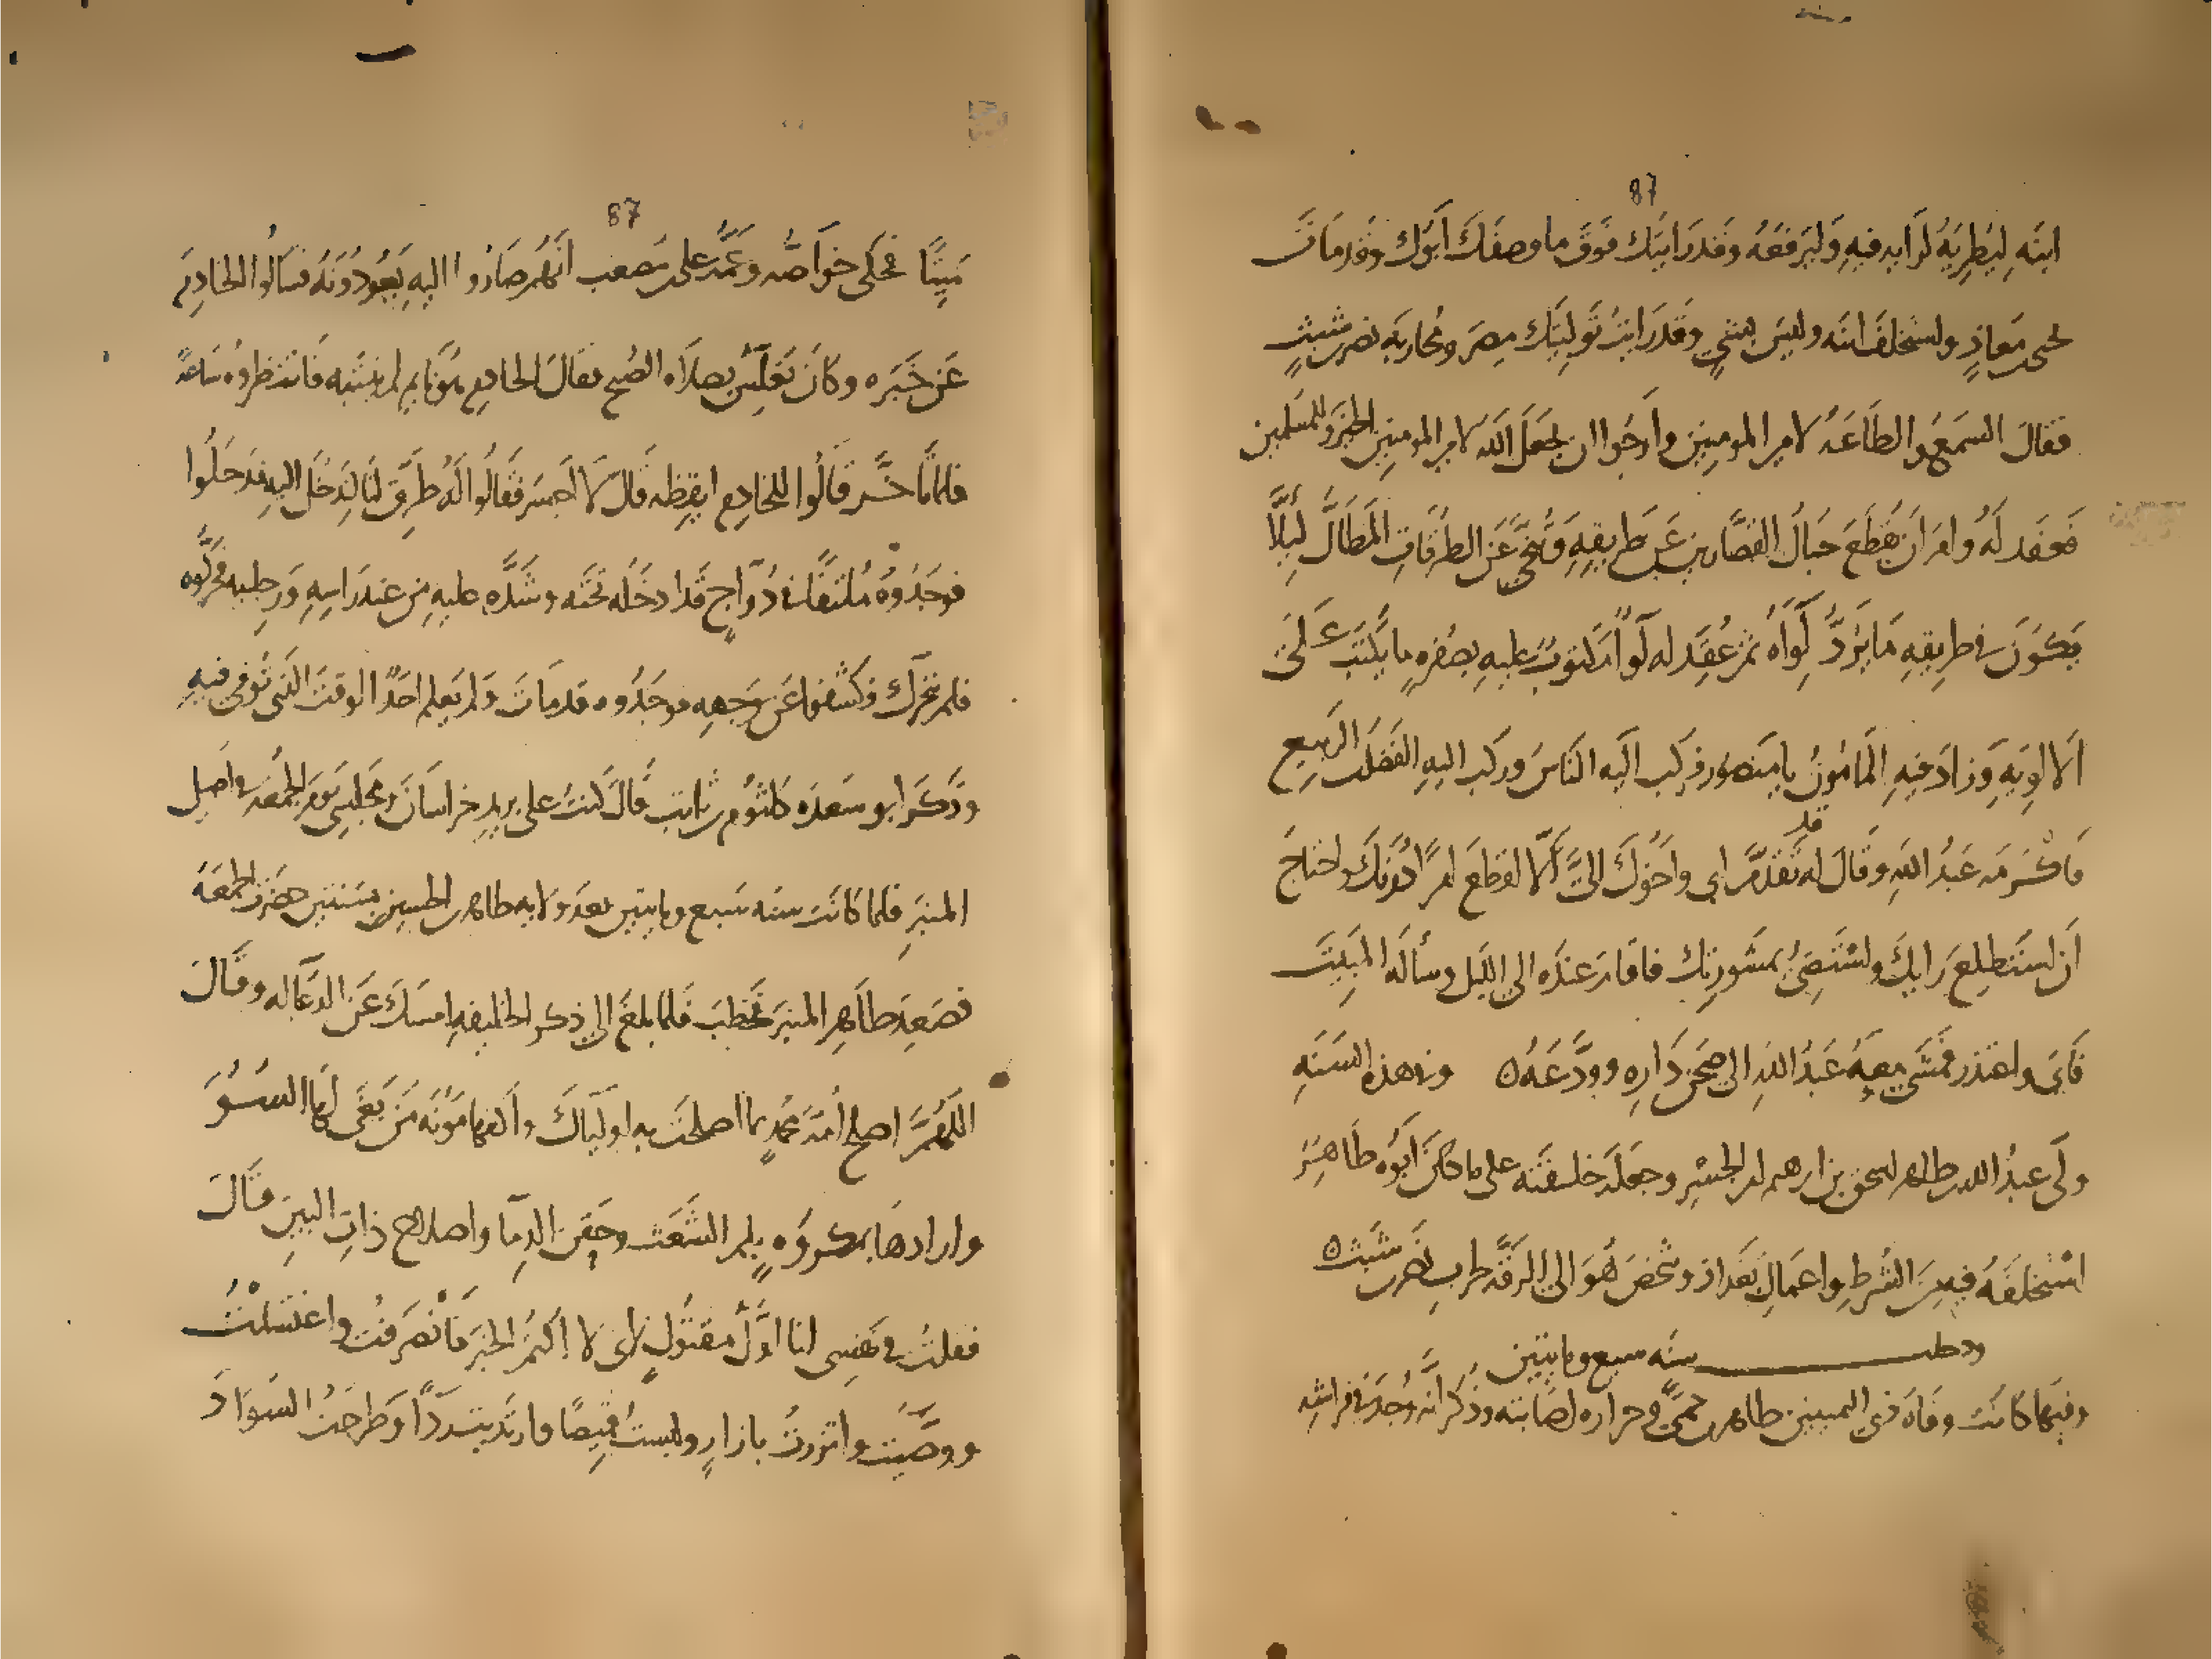 87
ابنه ليطريه لرأيه فيه وليرفعه وقد رايتك فوق ما وصفك ابوك وقد مات
يحيى بن معاذ واستخلف ابنه وليس بشي وقد رايت توليتك مصر ومحاربه نصر بن شبث
فقال السمع والطاعه لامير المومنين وارجوا ان يجعل الله لامير المومنين الخيره وللمسلمين
فعقد له وامر ان يقطع حبال القصارين عن طريقه وتنحى عن الطرقات المظال ليلا
يكون في طريقه ما يرد لواه ثم عقد له لوآ مكتوب عليه بصفره ما يكتب على
الالويه وزاد فيه المامون يا منصور فركب اليه الناس وركب اليه الفضل بن الربيع
فاكرمه عبد الله وقال له قد تقدم ابي واخوك الى الا اقطع امرا دونك واحتاج
ان استطلع رايك واستضي بمشورتك فاقام عنده الى الليل وسأله المبيت
فابى واعتذر فمشى معه عبد الله الى صحن داره وودعه ٥ وفي هذه السنه
ولى عبد الله بن طاهر اسحق بن ابرهيم امر الجسر وجعله خليفته على ما كان ابوه طاهر
استخلفه فيه من الشرط واعمال بغداذ وشخص هو الى الرقه لحرب نصر بن شبث ٥
ودخلت سنه سبع ومايتين
وفيها كانت وفاه ذي اليمينين طاهر من حمى في حراره اصابته وذكر انه وجد في فراشه
87
ميتا فحكى خواصه وعمه على بن مصعب انهم صاروا اليه يعودونه فسالوا الخادم
عن خبره وكان يغلس بصلاه الصبح فقال الخادم هو نايم لم ينتبه فانتظروه ساعه
فلما تاخر قالوا للخادم ايقظه قال لا اجسر فقالوا له طرق لنا لندخل اليه فدخلوا
فوجدوه ملتفا في دواج قد ادخله تحته وشده عليه من عند راسه ورجليه فحركوه
فلم يتحرك فكشفوا عن وجهه فوجدوه قد مات ولم يعلم احدا الوقت الذي توفى فيه
وذكر ابو سعده كلثوم بن ثابت قال كنت على بريد خراسان ومجلسي يوم الجمعه في اصل
المنبر فلما كانت سنه سبع ومايتين بعد ولايه طاهر بن الحسين بسنتين حضرت الجمعه
فصعد طاهر المنبر فخطب فلما بلغ الى ذكر الخليفه امسك عن الدعآ له وقال
اللهم اصلح امة محمد بما اصلحت به اوليآك واكفها مؤنه من بغى لها السو
وارادها بمكروه بلم الشعث وحقن الدمآ واصلاح ذات البين قال
فقلت في نفسي انا اول مقتول لاني لا اكتم الخبر فانصرفت واغتسلت
ووصيت واتزرت بازار ولبست قميصا وارتديت ردا وطرحت السواد